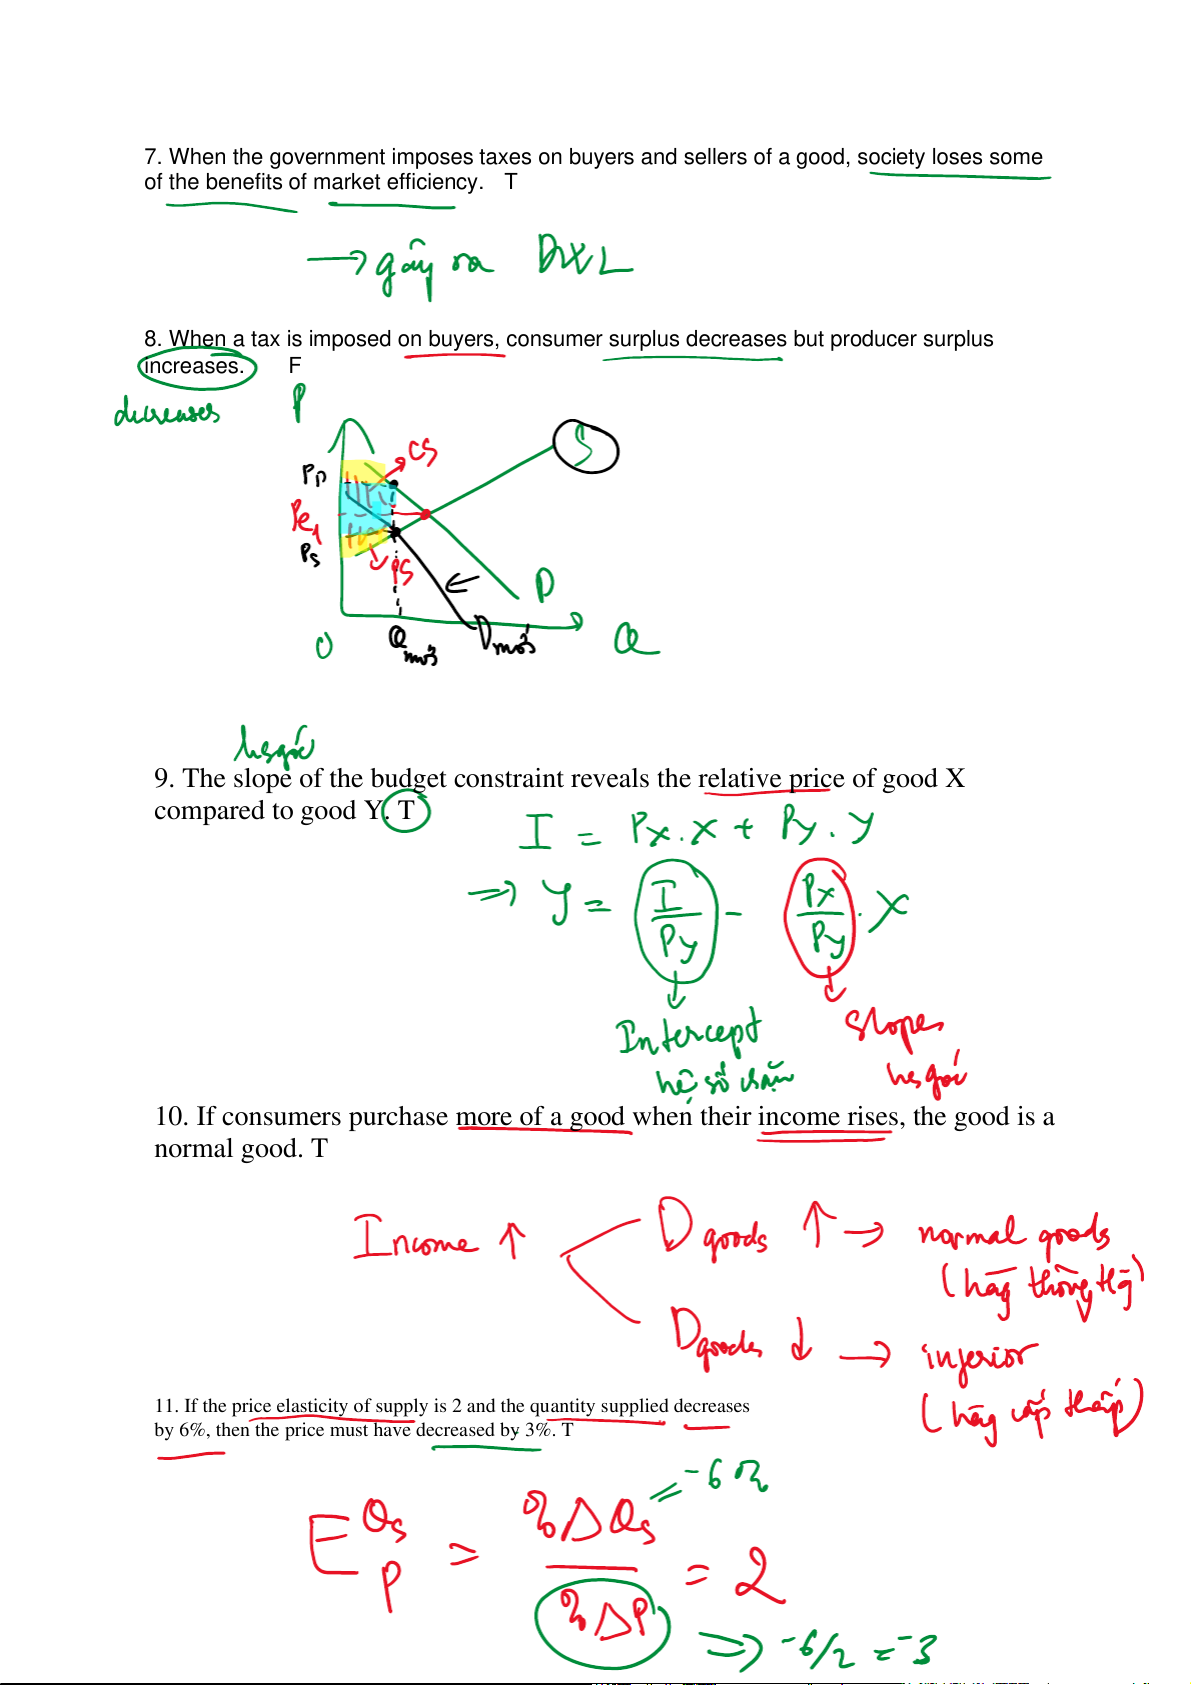 7. When the government imposes taxes on buyers and sellers of a good, society loses some
of the benefits of market efficiency. T
→ gây ra DWL
8. When a tax is imposed on buyers, consumer surplus decreases but producer surplus
increases. F
decreases
P
S
CS
PD
Pe1
Ps
PS
D
O
Q mới
D mới
Q
hsgóc
9. The slope of the budget constraint reveals the relative price of good X
compared to good Y. T
I = Px.X + Py.Y
=> Y = I/Py - Px/Py . X
Intercept
Slopes
hệ số chặn
hsgóc
10. If consumers purchase more of a good when their income rises, the good is a
normal good. T
Income ↑
D goods ↑ → normal goods
(hàng thông
D goods ↓ → inferior
(hàng cấp thấp)
11. If the price elasticity of supply is 2 and the quantity supplied decreases
by 6%, then the price must have decreased by 3%. T
= -6%
E Qs P = %ΔQs / %ΔP = 2
=> -6/2 = -3